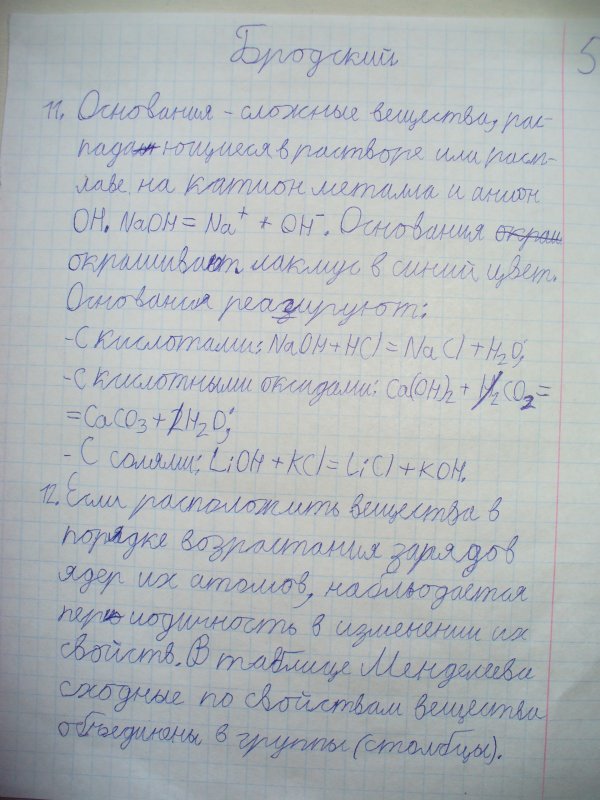 Бродский
5
11. Основания - сложные вещества, рас-
падающиеся в растворе или расп-
лаве на катион металла и анион
OH. NaOH = Na⁺ + OH⁻. Основания
окрашивают лакмус в синий цвет.
Основания реагируют:
-С кислотами: NaOH + HCl = NaCl + H₂O;
-С кислотными оксидами: Ca(OH)₂ + CO₂ =
= CaCO₃ + H₂O;
- С солями: LiOH + KCl = LiCl + KOH.
12. Если расположить вещества в
порядке возрастания зарядов
ядер их атомов, наблюдается
периодичность в изменении их
свойств. В таблице Менделеева
сходные по свойствам вещества
объединены в группы (столбцы).